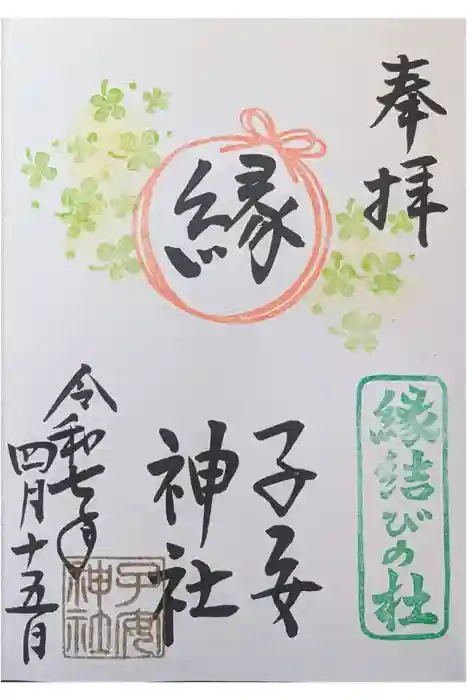 奉拝
縁
縁結びの杜
子安
神社
令和七年
四月十五日
子安
神社